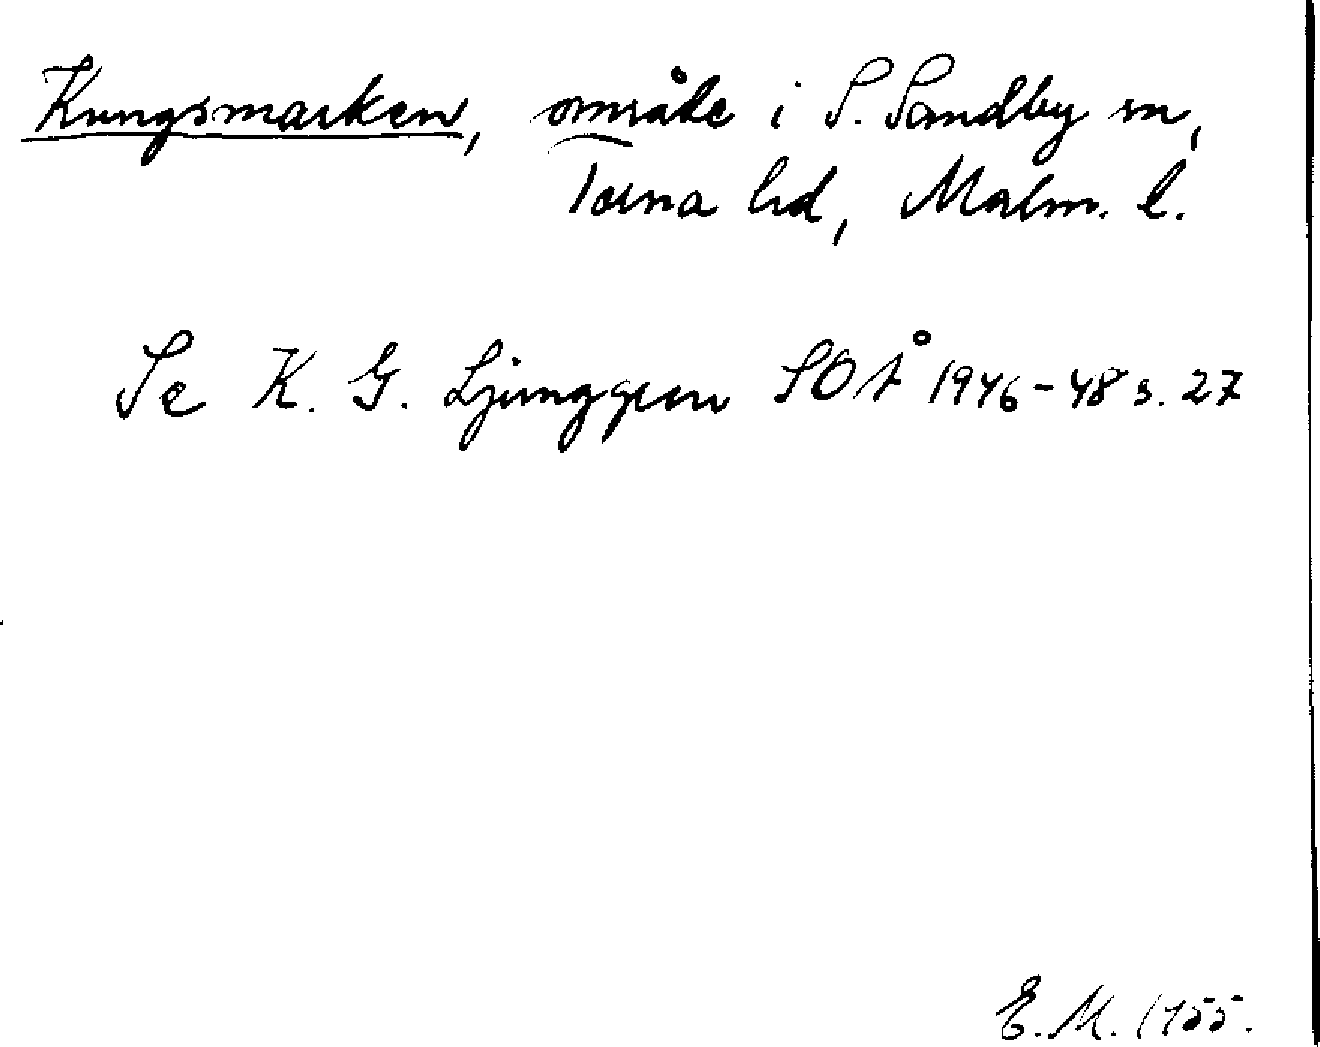 Kungsmarken, område i S. Sandby sn,
Torna hd, Malm. l.
Se K. G. Ljunggren SOÅ 1946-48 s. 27
E. M. 1955.